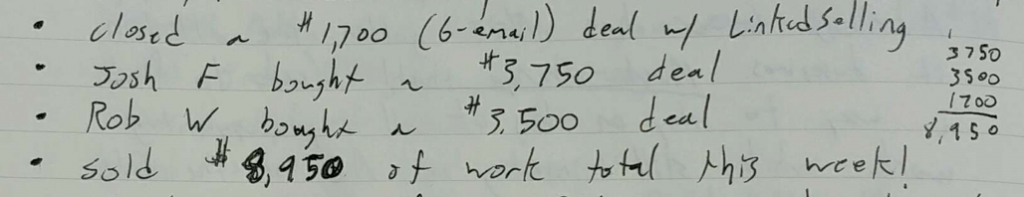 • closed a $1,700 (6-email) deal w/ LinkedSelling
• Josh F bought a $3,750 deal
• Rob W bought a $3,500 deal
• sold $8,950 of work total this week!
1
3750
3500
1700
8,950